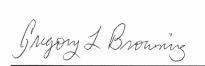 Gregory L Browning